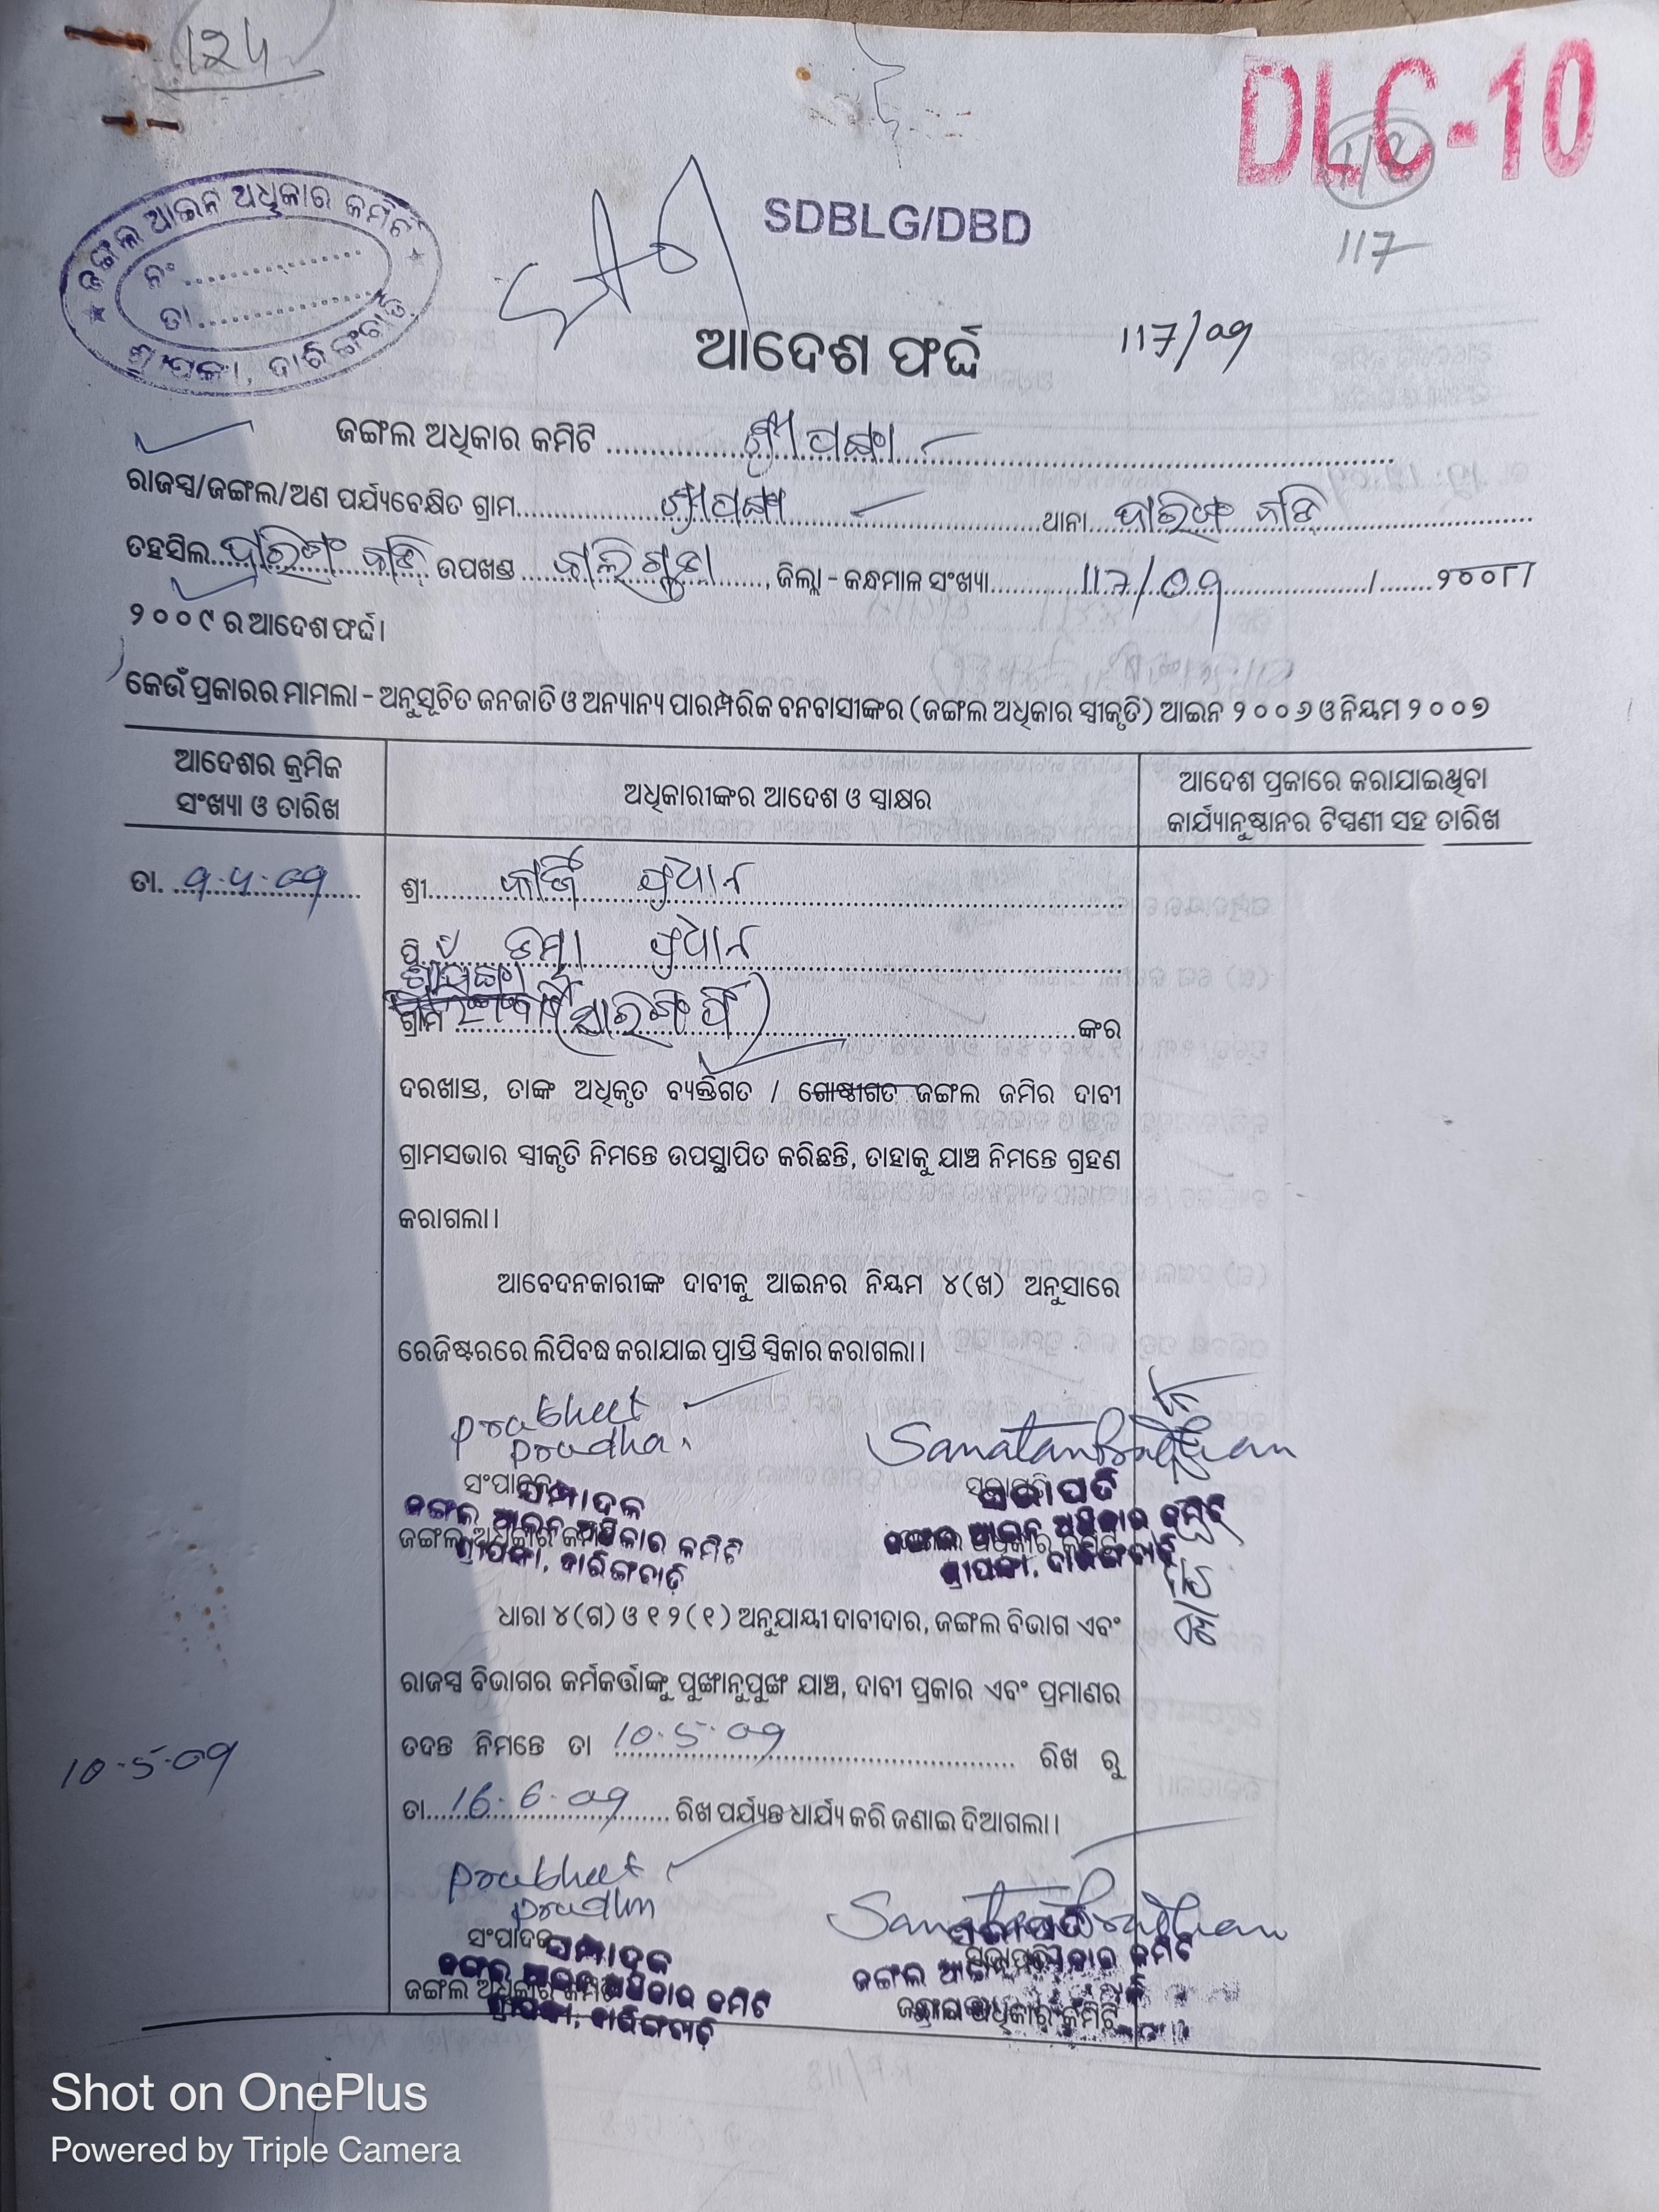 124
DLC-10
118
117
ଜଙ୍ଗଲ ଆଇନ ଅଧିକାର କମିଟି
ନଂ
ତା
ଶ୍ରୀପଙ୍କା, ଦାରିଙ୍ଗବାଡ଼ି
SDBLG/DBD
ଆଦେଶ ଫର୍ଦ୍ଦ 117/09
ଜଙ୍ଗଲ ଅଧିକାର କମିଟି ଶ୍ରୀପଙ୍କା
ରାଜସ୍ୱ/ଜଙ୍ଗଲ/ଅଣ ପର୍ଯ୍ୟବେକ୍ଷିତ ଗ୍ରାମ ଶ୍ରୀପଙ୍କା ଥାନା ଦାରିଙ୍ଗବାଡ଼ି
ତହସିଲ ଦାରିଙ୍ଗବାଡ଼ି ଉପଖଣ୍ଡ ବାଲିଗୁଡ଼ା, ଜିଲ୍ଲା - କନ୍ଧମାଳ ସଂଖ୍ୟା 117/09 / ୨୦୦୮/
୨୦୦୯ ର ଆଦେଶ ଫର୍ଦ୍ଦ।
କେଉଁ ପ୍ରକାରର ମାମଲା - ଅନୁସୂଚିତ ଜନଜାତି ଓ ଅନ୍ୟାନ୍ୟ ପାରମ୍ପରିକ ବନବାସୀଙ୍କର (ଜଙ୍ଗଲ ଅଧିକାର ସ୍ୱୀକୃତି) ଆଇନ ୨୦୦୬ ଓ ନିୟମ ୨୦୦୭
ଆଦେଶର କ୍ରମିକ
ସଂଖ୍ୟା ଓ ତାରିଖ
ଅଧିକାରୀଙ୍କର ଆଦେଶ ଓ ସ୍ୱାକ୍ଷର
ଆଦେଶ ପ୍ରକାରେ କରାଯାଇଥିବା
କାର୍ଯ୍ୟାନୁଷ୍ଠାନର ଟିପ୍ପଣୀ ସହ ତାରିଖ
ତା. 9.5.09
ଶ୍ରୀ ପ୍ରଧାନ
ପି ପ୍ରଧାନ
ଶ୍ରୀପଙ୍କା
ଗ୍ରାମ ଙ୍କର
ଦରଖାସ୍ତ, ତାଙ୍କ ଅଧିକୃତ ବ୍ୟକ୍ତିଗତ / ଗୋଷ୍ଠୀଗତ ଜଙ୍ଗଲ ଜମିର ଦାବୀ
ଗ୍ରାମସଭାର ସ୍ୱୀକୃତି ନିମନ୍ତେ ଉପସ୍ଥାପିତ କରିଛନ୍ତି, ତାହାକୁ ଯାଞ୍ଚ ନିମନ୍ତେ ଗ୍ରହଣ
କରାଗଲା।
ଆବେଦନକାରୀଙ୍କ ଦାବୀକୁ ଆଇନର ନିୟମ ୪(ଖ) ଅନୁସାରେ
ରେଜିଷ୍ଟରରେ ଲିପିବଦ୍ଧ କରାଯାଇ ପ୍ରାପ୍ତି ସ୍ୱିକାର କରାଗଲା।
Prabheet
Pradhan
Sanatan Pradhan
ସଂପାଦକ
ସଭାପତି
ସମ୍ପାଦକ
ସଭାପତି
ଜଙ୍ଗଲ ଅଧିକାର କମିଟି
ଜଙ୍ଗଲ ଅଧିକାର କମିଟି
ଜଙ୍ଗଲ ଆଇନ ଅଧିକାର କମିଟି
ଶ୍ରୀପଙ୍କା, ଦାରିଙ୍ଗବାଡ଼ି
ଜଙ୍ଗଲ ଆଇନ ଅଧିକାର କମିଟି
ଶ୍ରୀପଙ୍କା, ଦାରିଙ୍ଗବାଡ଼ି
ଧାରା ୪(ଗ) ଓ ୧୨(୧) ଅନୁଯାୟୀ ଦାବୀଦାର, ଜଙ୍ଗଲ ବିଭାଗ ଏବଂ
ରାଜସ୍ୱ ବିଭାଗର କର୍ମକର୍ତ୍ତାଙ୍କୁ ପୁଙ୍ଖାନୁପୁଙ୍ଖ ଯାଞ୍ଚ, ଦାବୀ ପ୍ରକାର ଏବଂ ପ୍ରମାଣର
10-5-09
ତଦନ୍ତ ନିମନ୍ତେ ତା 10.5.09 ରିଖ ରୁ
ତା 16.6.09 ରିଖ ପର୍ଯ୍ୟନ୍ତ ଧାର୍ଯ୍ୟ କରି ଜଣାଇ ଦିଆଗଲା।
Prabheet
Pradhan
Sanatan Pradhan
ସଂପାଦକ
ସଭାପତି
ସମ୍ପାଦକ
ସଭାପତି
ଜଙ୍ଗଲ ଅଧିକାର କମିଟି
ଜଙ୍ଗଲ ଅଧିକାର କମିଟି
ଜଙ୍ଗଲ ଆଇନ ଅଧିକାର କମିଟି
ଶ୍ରୀପଙ୍କା, ଦାରିଙ୍ଗବାଡ଼ି
ଜଙ୍ଗଲ ଆଇନ ଅଧିକାର କମିଟି
Shot on OnePlus
Powered by Triple Camera